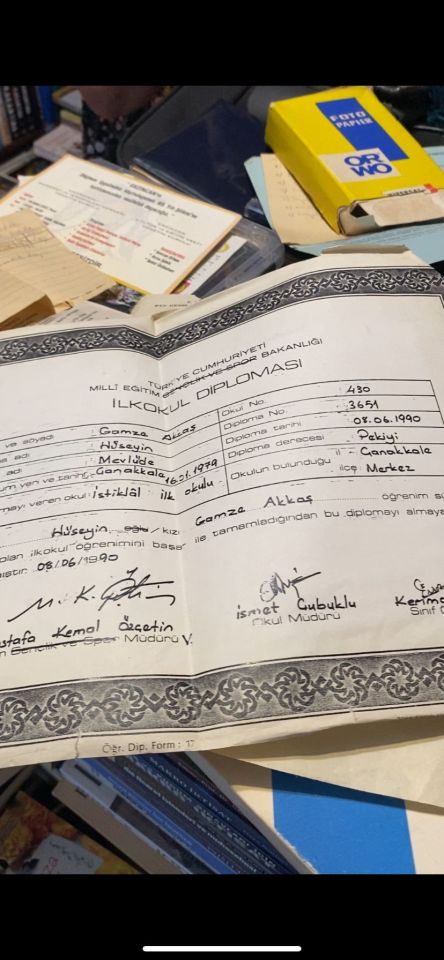 FOTO
PAPIER
ORWO
UNIVERSAL
TÜRKİYE CUMHURİYETİ
MİLLÎ EĞİTİM GENÇLİK VE SPOR BAKANLIĞI
İLKOKUL DİPLOMASI
ve soyadı : Gamze Akkaş
adı : Hüseyin
adı : Mevlüde
um yeri ve tarihi : Çanakkale 16.01.1979
mayı veren okul : İstiklâl ilk okulu
Okul No. : 430
Diploma No. : 3651
Diploma tarihi : 08.06.1990
Diploma derecesi : Pekiyi
Okulun bulunduğu il : Çanakkale
ilçe : Merkez
Hüseyin, oğlu / kızı Gamze Akkaş öğrenim sü
olan ilkokul öğrenimini başa ile tamamladığından bu diplomayı almaya
08/06/1990
M. K. Özçetin
ustafa Kemal Özçetin
Gençlik ve Spor Müdürü V.
İsmet Çubuklu
Okul Müdürü
Kerim
Sınıf
Öğr. Dip. Form : 17